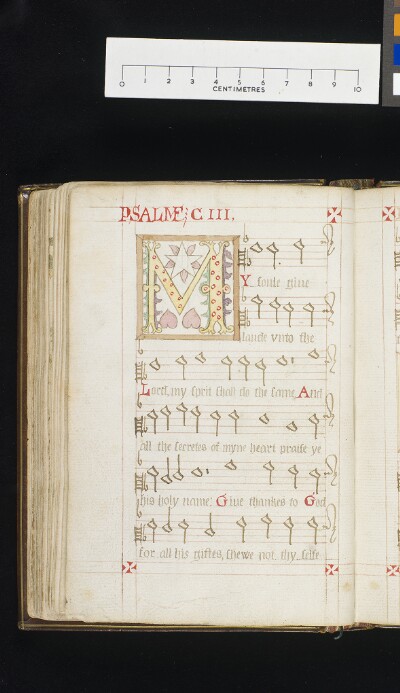 0 1 2 3 4 5 6 7 8 9 10
CENTIMETRES
PSALME; C III.
MY soule give
laude vnto the
Lord, my sprit shall do the same, And
all the secretes of myne heart praise ye
his holy name: Give thankes to God
for all his giftes, shewe not thy selfe